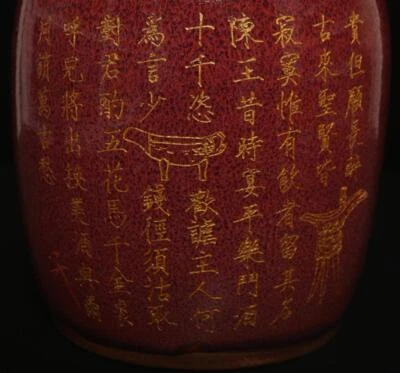 貴但願長醉
古來聖賢皆
寂寞惟有飲者留其名
陳王昔時宴平樂斗酒
十千恣歡謔主人何
為言少錢徑須沽取
對君酌五花馬千金裘
呼兒將出換美酒與爾
同銷萬古愁